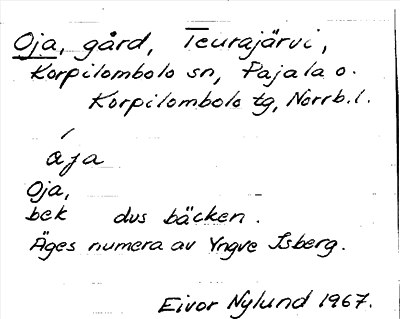 Oja, gård, Teurajärvi,
Korpilombolo sn, Pajala o.
Korpilombolo tg, Norrb.l.
ója
Oja,
bek dvs bäcken.
Äges numera av Yngve Isberg.
Eivor Nylund 1967.